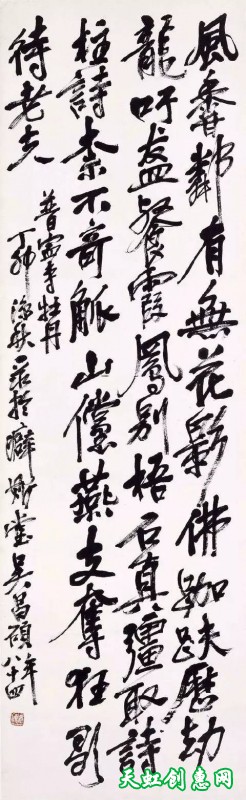 風香鄰有無花影佛跏趺歷劫
龍吁盋餐霞鳳別梧石真彊取詩
柱詩素不奇觚山儻燕支奪狂歌
待老夫
普寧寺牡丹
丁卯深秋 書於癖斯堂 吳昌碩 年
八十四
天虹创惠网